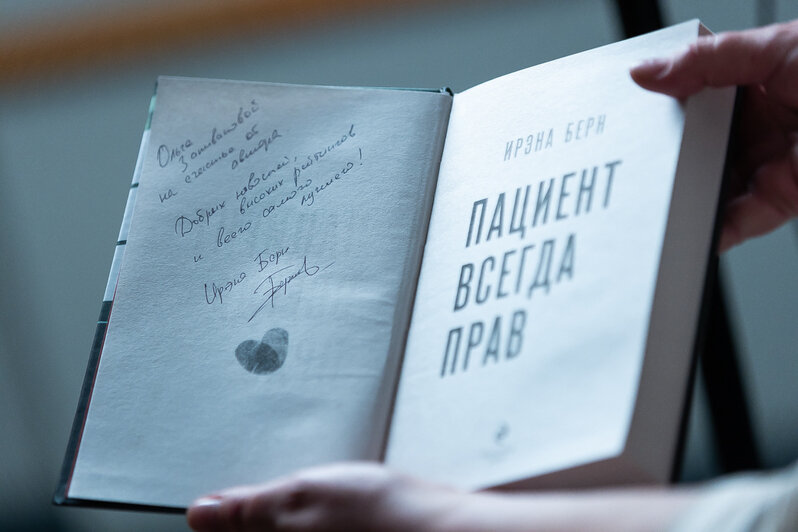 Ольга
на счастье от
автора
Добрых новостей,
высоких рейтингов
и всего самого
лучшего!
Ирэна Берн
ИРЭНА БЕРН
ПАЦИЕНТ
ВСЕГДА
ПРАВ